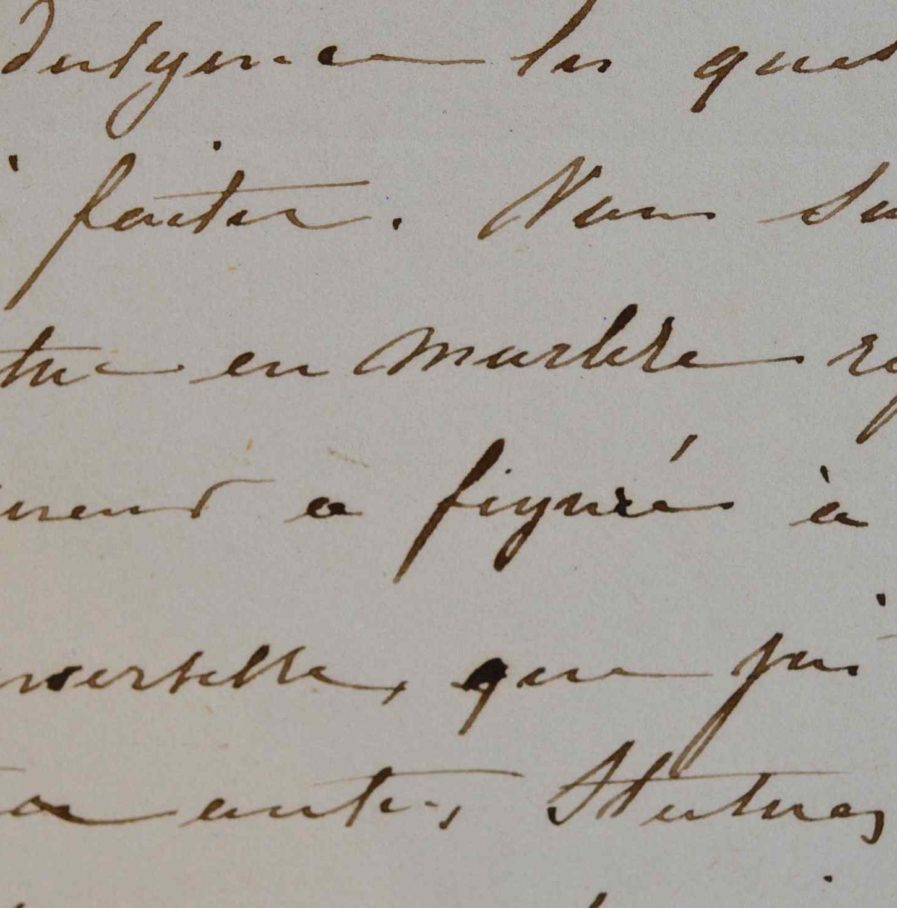 dulgence les ques
faites. Nous su
tue en marbre re
urent a figuré à
iverselle, que j'ai
autres Statues